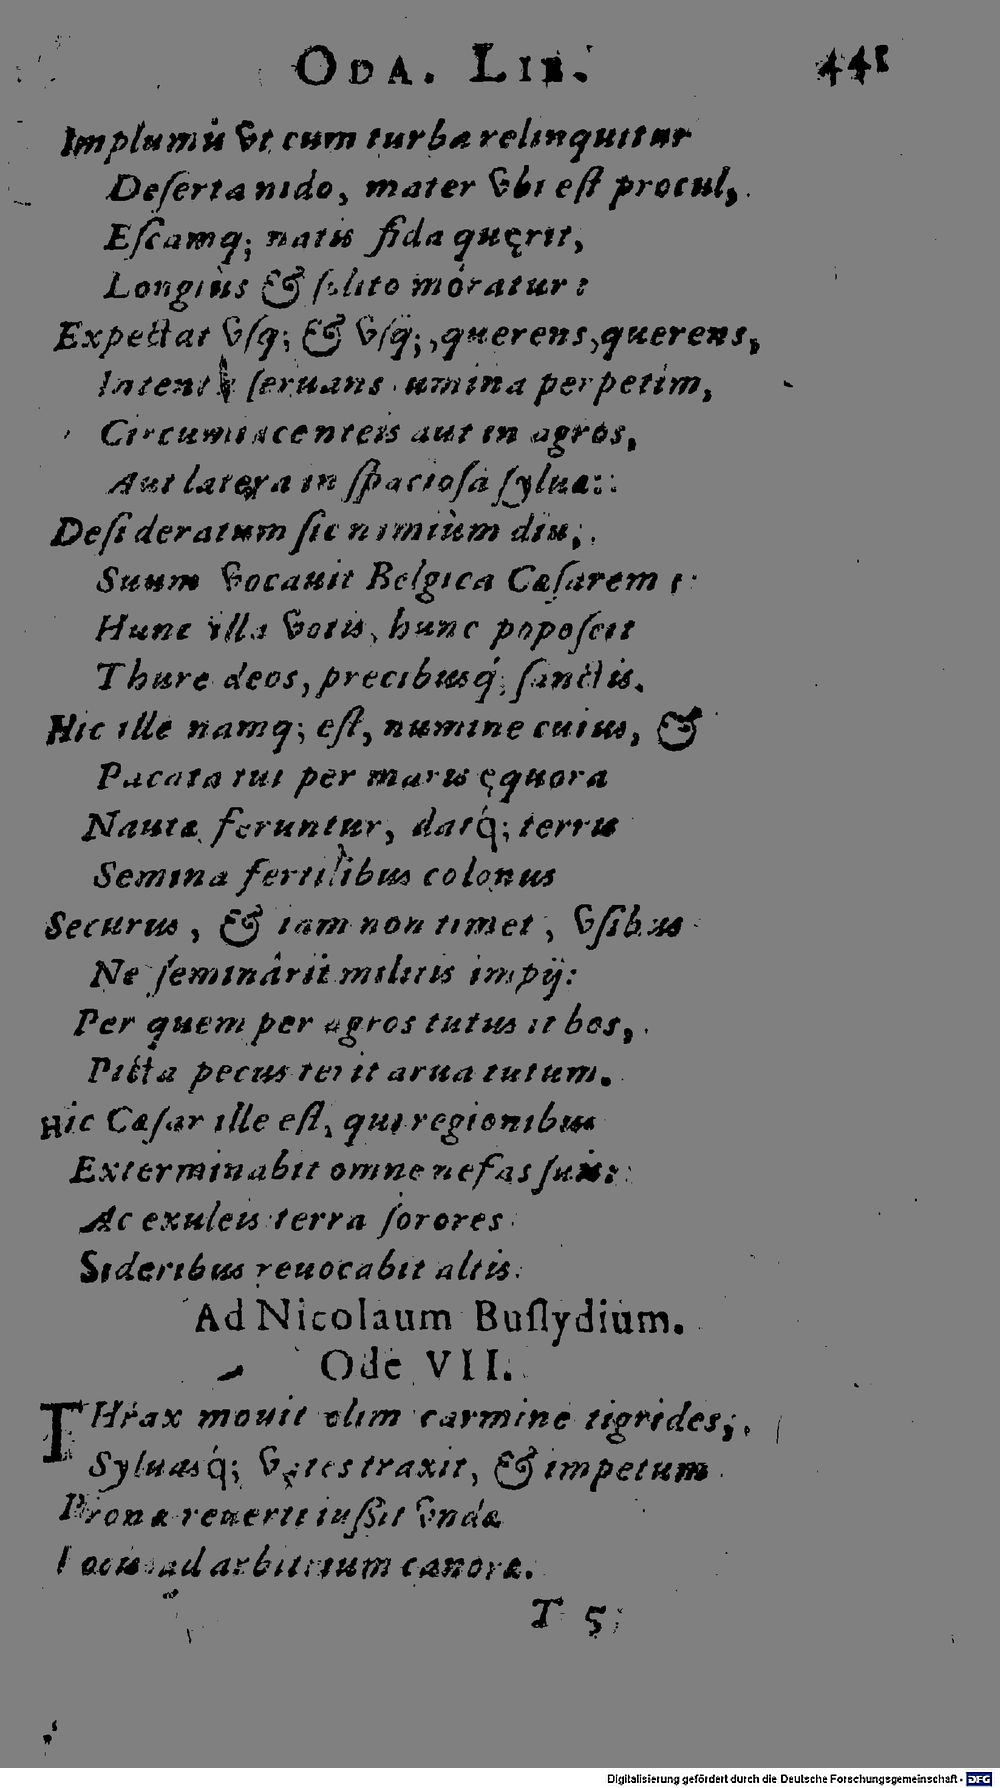 ODA. LIB. 441
Implumis vt cum turba relinquitur
Deserta nido, mater vbi est procul,
Escamq; natis fida quęrit,
Longiùs & solito moratur:
Expectat vsq; & vsq;, querens, querens,
seruans lumina perpetim,
Circumiacenteis aut in agros,
Aut latera in spaciosa syluæ:
Desideratum sic nimiùm diu,
Suum vocauit Belgica Cæsarem:
Hunc illa votis, hunc poposcit
Thure deos, precibusq́; sanctis.
Hic ille namq; est, numine cuius, &
Pacata tui per maris ęquora
Nautæ feruntur, datq́; terris
Semina fertilibus colonus
Securus, & iam non timet, vsibus
Ne seminârit militis impij:
Per quem per agros tutus it bos,
Picta pecus terit arua tutum.
Hic Cæsar ille est, qui regionibus
Exterminabit omne nefas suis:
Ac exuleis terra sorores
Sideribus reuocabit altis.
Ad Nicolaum Buslydium.
Ode VII.
THrax mouit olim carmine tigrides,
Syluasq́; traxit, & impetum
Pronæ reuerti iußit vndæ
ad arbitrium canoræ.
T 5
Digitalisierung gefördert durch die Deutsche Forschungsgemeinschaft - DFG